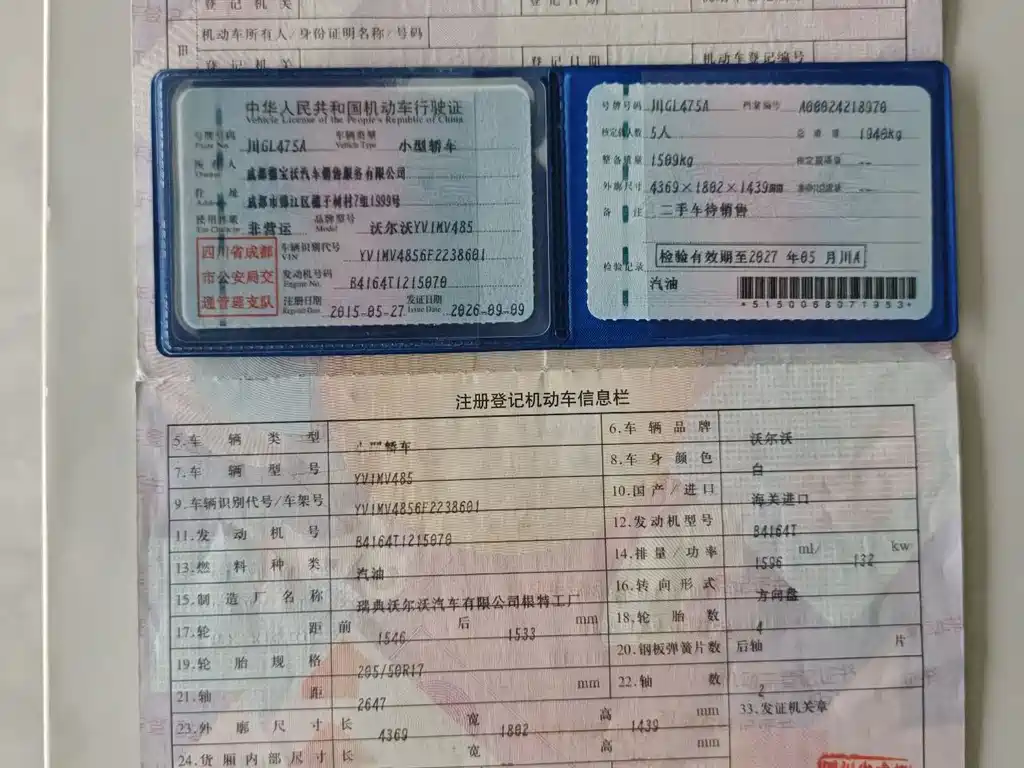 登记机关 登记日期
Ⅲ 机动车所有人/身份证明名称/号码
登记机关 登记日期 机动车登记编号
中华人民共和国机动车行驶证
Vehicle License of the People's Republic of China
号牌号码 Plate No. 川GL475A 车辆类型 Vehicle Type 小型轿车
所有人 Owner 成都宝沃汽车销售服务有限公司
住址 Address 成都市锦江区榿子树村7组1999号
使用性质 Use Character 非营运 品牌型号 Model 沃尔沃YV1MV485
四川省成都市公安局交通管理支队
车辆识别代号 VIN YV1MV4856F2238601
发动机号码 Engine No. B4164T1215070
注册日期 Register Date 2015-05-27 发证日期 Issue Date 2026-09-09
号牌号码 川GL475A 档案编号 A00024218970
核定载人数 5人 总质量 1940kg
整备质量 1509kg 核定载质量 --
外廓尺寸 4369×1802×1439mm --
备注 二手车待销售
检验有效期至2027年05月川A
检验记录
汽油
*5150068071953*
注册登记机动车信息栏
5.车辆类型 小型轿车 6.车辆品牌 沃尔沃
7.车辆型号 YV1MV485 8.车身颜色 白
9.车辆识别代号/车架号 YV1MV4856F2238601 10.国产/进口 海关进口
11.发动机号 B4164T1215070 12.发动机型号 B4164T
13.燃料种类 汽油 14.排量/功率 1596 ml/ 132 kw
15.制造厂名称 瑞典沃尔沃汽车有限公司根特工厂 16.转向形式 方向盘
17.轮距 前 1546 后 1533 mm 18.轮胎数 4
19.轮胎规格 205/50R17 20.钢板弹簧片数 后轴 片
21.轴距 2647 mm 22.轴数 2
23.外廓尺寸 长 4369 宽 1802 高 1439 mm 33.发证机关章
24.货厢内部尺寸 长 宽 高 mm